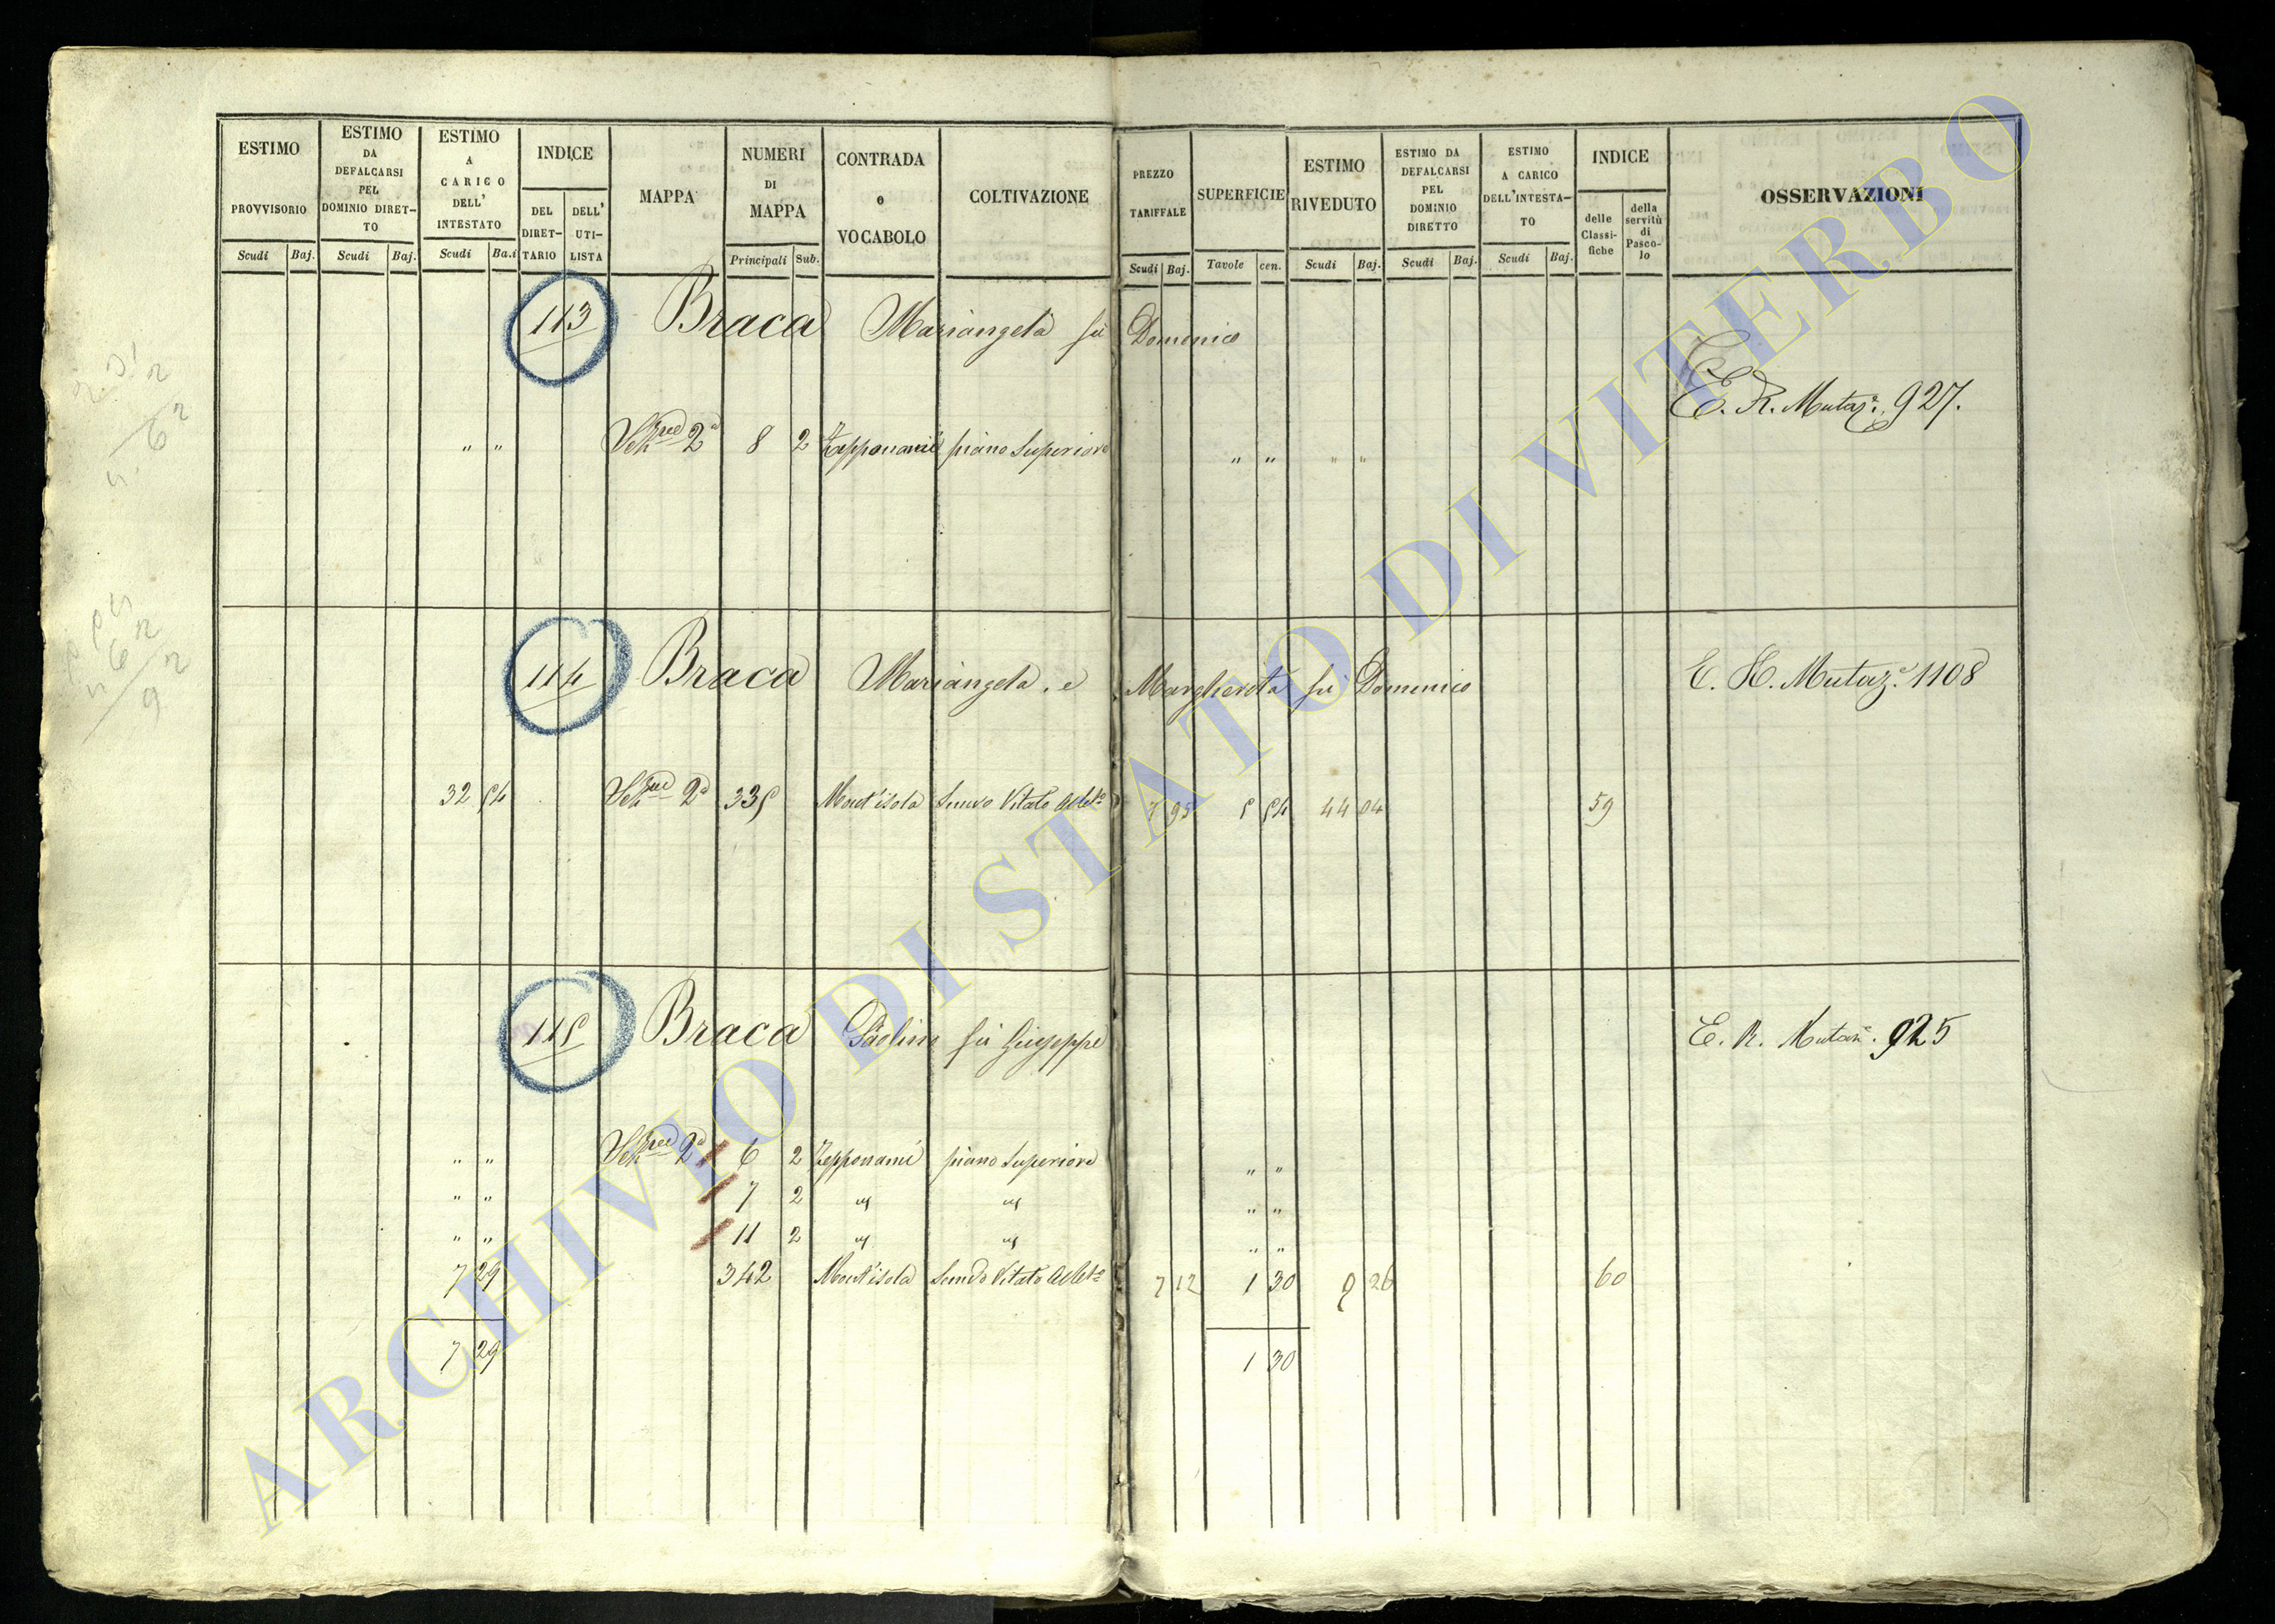 ESTIMO PROVVISORIO
Scudi Baj.
ESTIMO DA DEFALCARSI PEL DOMINIO DIRET-TO
Scudi Baj.
ESTIMO A CARICO DELL' INTESTATO
Scudi Ba.i
INDICE
DEL DIRET-TARIO
DELL' UTI-LISTA
MAPPA
NUMERI DI MAPPA
Principali Sub.
CONTRADA o VOCABOLO
COLTIVAZIONE
PREZZO TARIFFALE
Scudi Baj.
SUPERFICIE
Tavole cen.
ESTIMO RIVEDUTO
Scudi Baj.
ESTIMO DA DEFALCARSI PEL DOMINIO DIRETTO
Scudi Baj.
ESTIMO A CARICO DELL'INTESTA-TO
Scudi Baj.
INDICE
delle Classi-fiche
della servitù di Pasco-lo
OSSERVAZIONI
113 Braca Mariangela fu Domenico
E. R. Mutaz.e 927.
" " 2a 8 2 Zepponami piano Superiore " " " "
114 Braca Mariangela, e Margherita fu Domenico E. R. Mutaz.e 1108
32 54 2a 335 Mont'isola Semvo Vitato Albto 7 95 5 54 44 04 59
115 Braca Paolino fu Giuseppe E. R. Mutaz.e 925
" " 2a 6 2 Zepponami piano Superiore " "
" " 7 2 " " " "
" " 11 2 " " " "
7 29 342 Mont'isola Semvo Vitato Albto 7 12 1 30 9 26 60
7 29 1 30
ARCHIVIO DI STATO DI VITERBO